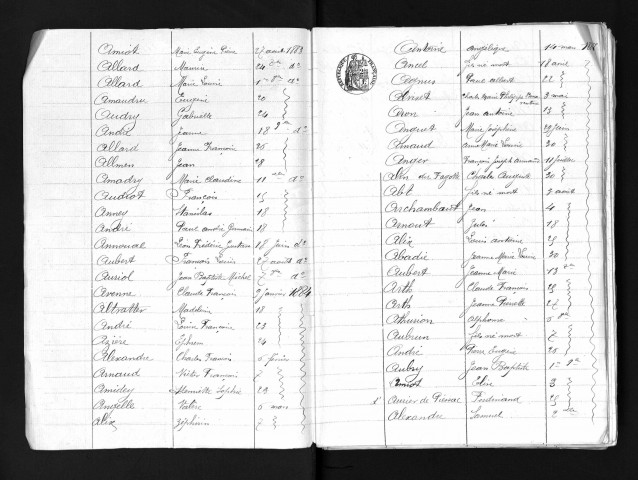 Amiot Marie Eugène Pierre 27 aout 1883
Allard Maurice 24 do do
Allard Marie Louise 1er do
Amaudru Eugène 20
Audry Gabrielle 24
André Jeanne 18 9bre do
Allard Jeanne Françoise 26
Allmen Jean 28
Amadry Marie Claudine 11 do
Audriot François 15
Anney Stanislas 18
André Paul André Germain 18
Annonal Léon Frédéric Gustave 18 Juin do
Aubert François Louis 27 aout do
Auriol Jean Baptiste Michel 7 do
Avenne Claude François 9 janvier 1884
Altvatter Madeleine 18
André Louise Françoise 23
Azière Ephrem 24
Alexandre Charles Francis 6 février
Arnaud Victor François 7
Amidey Henriette Sophie 29
Amyelle Valère 6 mars
Alix Zéphirin 7
Antoine Angélique 14 mars
Ancel fils né mort 18 avril
Agnus Paul Albert 22
Anset Charles Marie Philippe 3 mai
Aron Jean Antoine 13
Anquet Marie Joséphine 29 Juin
Arnaud Anne Marie Louise 30
Anger François Joseph Armand 11 juillet
Charles Auguste 30
Abt fils né mort 3 aout
Archambault Jean 4
Arnoult Jules 18
Alix Louis Antoine 29
Abadie Jeanne Marie Louise 30
Aubert Jeanne Marie 13
Arth Claude François 29
Arth Jeanne Pierrette 27
Athusion Alphonse 6
Aubrun fils né mort 7
André Pierre Eugène 26
Aubry Jean Baptiste 1er
Amiot Céline 3
x Aurier de Pierre Ferdinand 29
Alexandre Samuel 2